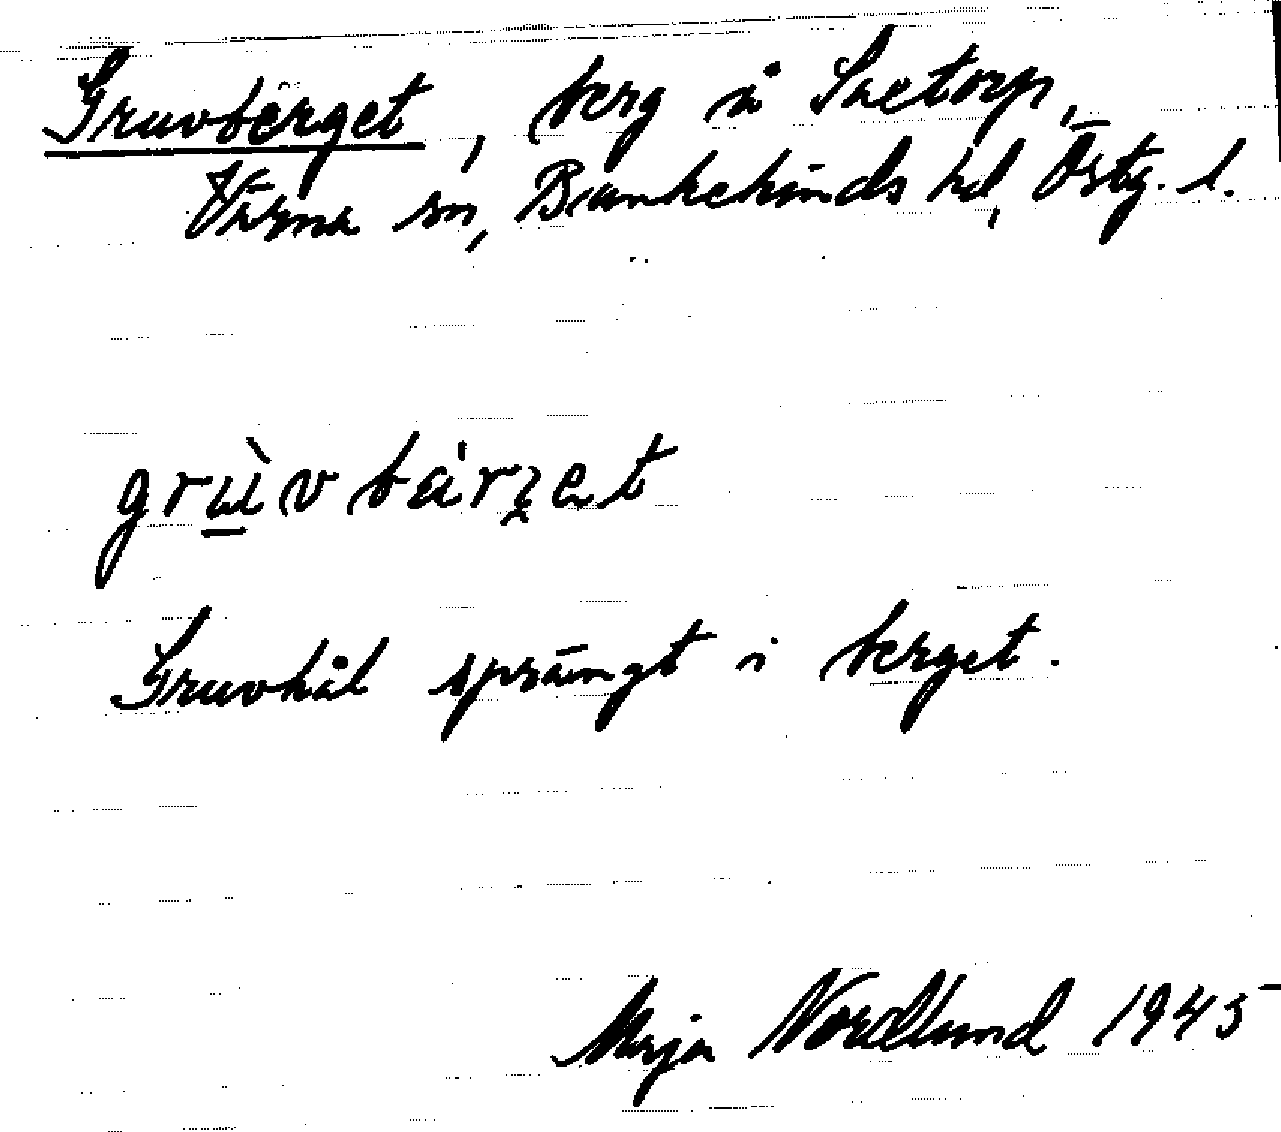 Gruvberget, berg å Saetorp,
Värna sn, Bankekinds hd, Östg. l.
grùvbárʒet
Gruvhål sprängt i berget.
Maja Nordlund 1945